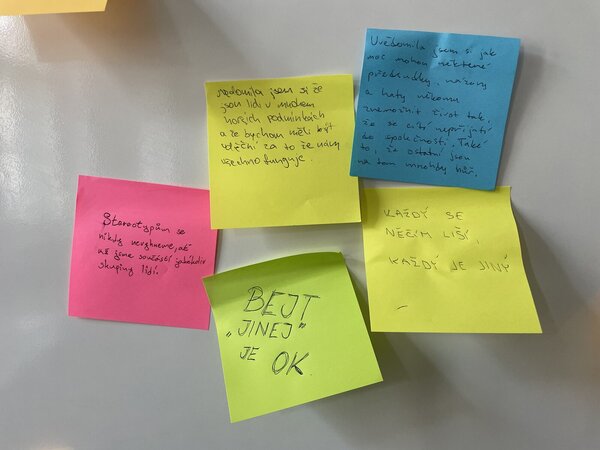 Uvědomila jsem si jak
moc mohou některé
předsudky, názory
a haty někomu
znemožnit život tak,
že se cítí nepřijatí
do společnosti. Také
to, že ostatní jsou
na tom mnohby hůř.
uvědomila jsem si že
jsou lidi v mnohem
horších podmínkách
a že bychom měli být
vděční za to že nám
všechno funguje.
Stereotypům se
nikdy nevyhneme, ať
už jsme součástí jakékoliv
skupiny lidí.
KAŽDÝ SE
NĚČÍM LIŠÍ,
KAŽDÝ JE JINÝ
BEJT
„JINEJ"
JE OK.